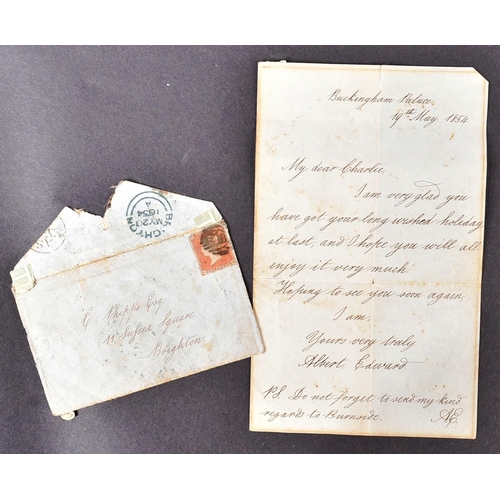 BRIGHTON
MY 20
1854
A
C Phipps Esq
Sussex Square
Brighton
Buckingham Palace
19th May 1854
My dear Charlie,
I am very glad you
have got your long wished holiday
at last, and I hope you will all
enjoy it very much
Hoping to see you soon again
I am,
Yours very truly
Albert Edward
P.S. Do not forget to send my kind
regards to Burnside. AE.